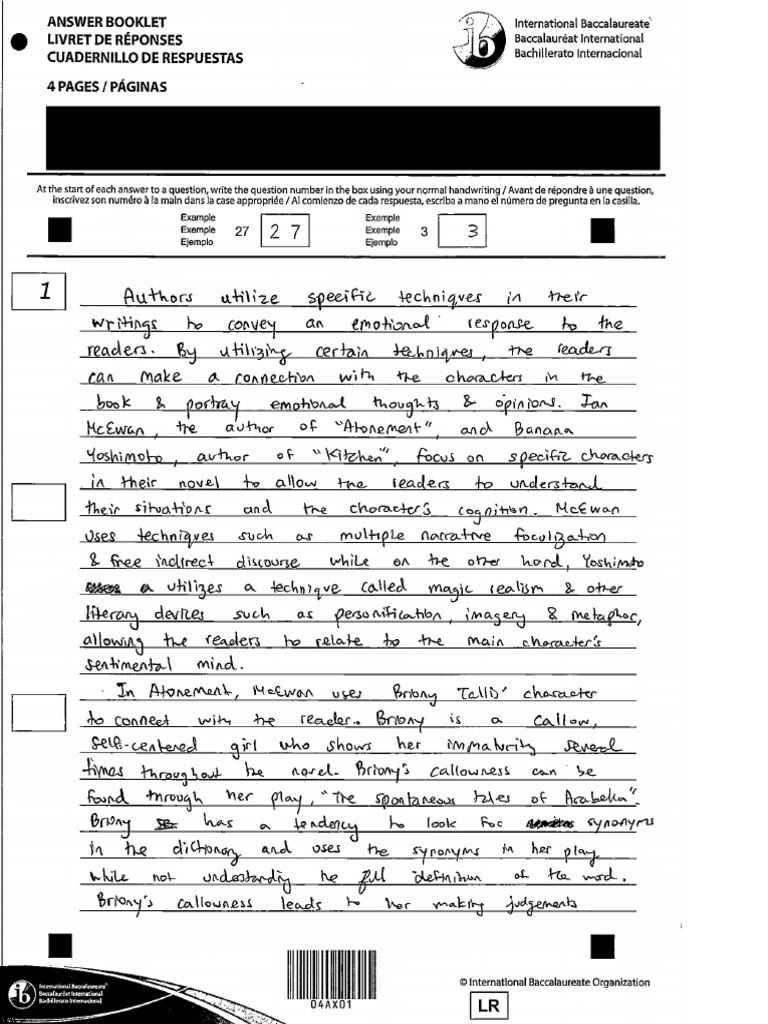 ANSWER BOOKLET
LIVRET DE RÉPONSES
CUADERNILLO DE RESPUESTAS
4 PAGES / PÁGINAS
International Baccalaureate
Baccalauréat International
Bachillerato Internacional
At the start of each answer to a question, write the question number in the box using your normal handwriting / Avant de répondre à une question,
inscrivez son numéro à la main dans la case appropriée / Al comienzo de cada respuesta, escriba a mano el número de pregunta en la casilla.
Example
Example 27 27
Ejemplo
Example
Example 3 3
Ejemplo
1
Authors utilize specific techniques in their
writings to convey an emotional response to the
readers. By utilizing certain techniques, the readers
can make a connection with the characters in the
book & portray emotional thoughts & opinions. Ian
McEwan, the author of "Atonement", and Banana
Yoshimoto, author of "Kitchen", focus on specific characters
in their novel to allow the readers to understand
their situations and the character's cognition. McEwan
uses techniques such as multiple narrative foculization
& free indirect discourse while on the other hand, Yoshimoto
utilizes a technique called magic realism & other
literary devices such as personification, imagery & metaphor,
allowing the readers to relate to the main character's
sentimental mind.
In Atonement, McEwan uses Briony Tallis' character
to connect with the reader. Briony is a callow,
self-centered girl who shows her immaturity several
times throughout the novel. Briony's callowness can be
found through her play, "The spontaneous tales of Arabella".
Briony has a tendency to look for synonyms
in the dictionary and uses the synonyms in her play
while not understanding the full definition of the word.
Briony's callowness leads to her making judgements
International Baccalaureate
Baccalauréat International
Bachillerato Internacional
04AX01
© International Baccalaureate Organization
LR